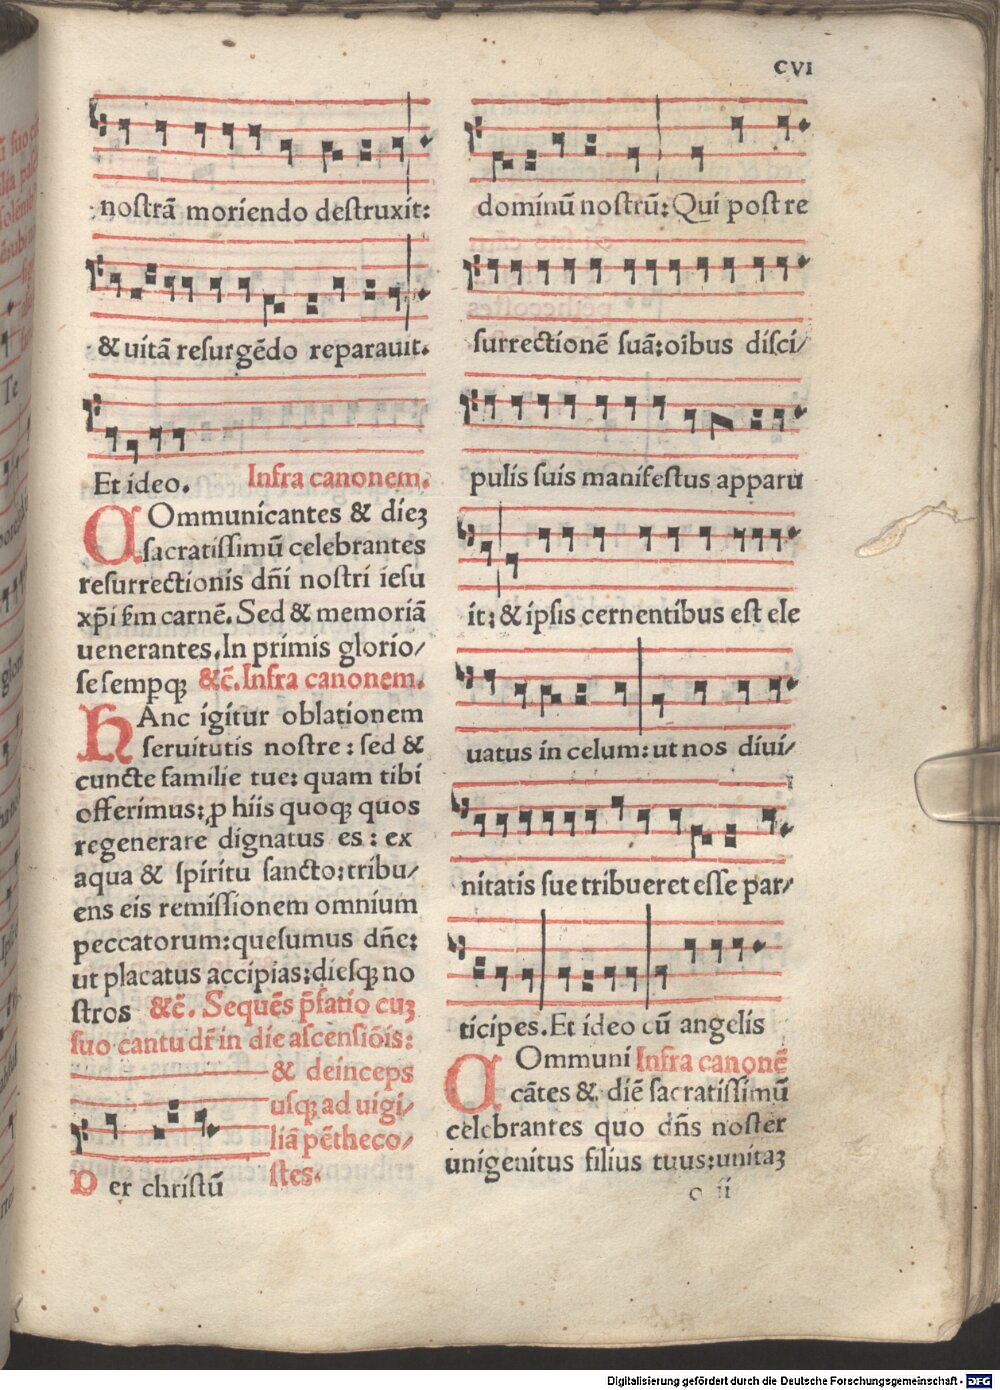 CVI
nostrā moriendo destruxit:
& uitā resurgēdo reparauit.
Et ideo. Infra canonem.
COmmunicantes & dieʒ
sacratissimū celebrantes
resurrectionis dn̄i nostri iesu
xp̄i s̄m carnē. Sed & memoriā
uenerantes. In primis glorio/
se sempqʒ &c̄. Infra canonem.
HAnc igitur oblationem
seruitutis nostre: sed &
cuncte familie tue: quam tibi
offerimus: ꝓ hiis quoqʒ quos
regenerare dignatus es: ex
aqua & spiritu sancto: tribu/
ens eis remissionem omnium
peccatorum: quesumus dn̄e:
ut placatus accipias: diesqʒ no
stros &c̄. Sequēs p̄fatio cuʒ
suo cantu dr̄ in die ascensiōis:
& deinceps
usqʒ ad uigi/
liā pētheco/
stes.
Per christū
dominū nostrū: Qui post re
surrectionē suā: oībus disci/
pulis suis manifestus apparu
it: & ipsis cernentibus est ele
uatus in celum: ut nos diui/
nitatis sue tribueret esse par/
ticipes. Et ideo cū angelis
COmmuni Infra canonē
cātes & diē sacratissimū
celebrantes quo dn̄s noster
unigenitus filius tuus: unitaʒ
o ii
Digitalisierung gefördert durch die Deutsche Forschungsgemeinschaft - DFG